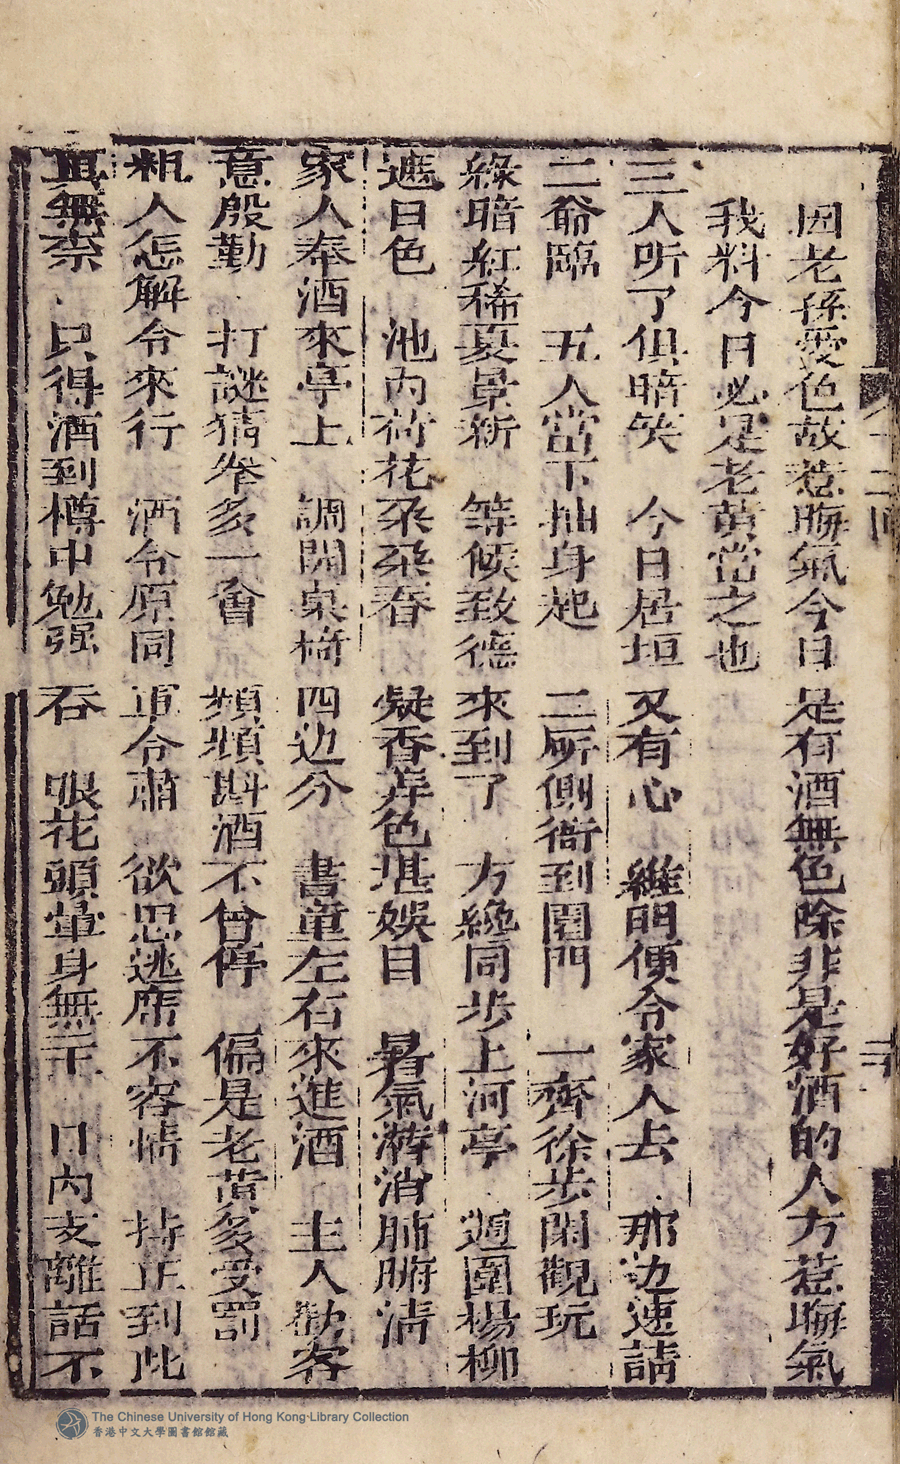 因老孫愛色故惹晦氣今日是有酒無色除非是好酒的人方惹晦氣
我料今日必是老黃當之也
三人听了俱暗笑 今日居垣又有心 維明便令家人去 那边速請
二爺臨 五人當下抽身起 二所側衙到園門 一齊徐步閑觀玩
綠暗紅稀夏景新 等候致德來到了 方纔同步上河亭 週圍楊柳
遮日色 池內荷花朶朶春 凝香弄色堪娛目 暑氣潛消肺腑清
家人奉酒來亭上 調開桌椅四边分 書童左右來進酒 主人勸客
意殷勤 打謎猜拳多一會 頻頻斟酒不曾停 偏是老黃多受罰
粗人怎解令來行 酒令原同軍令肅 欲思逃席不容情 持正到此
真無柰 只得酒到樽中勉强吞 眼花頭暈身無 口內支離話不
十二回
The Chinese University of Hong Kong Library Collection
香港中文大學圖書館館藏